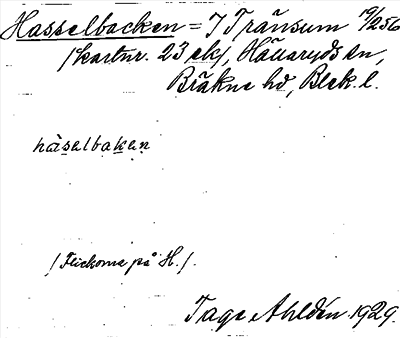 Hasselbacken = I Tränsum 19/256
/kartnr. 23 ek/, Hällaryds sn,
Bräkne hd, Blek. l.
hàsəlbakən
/Flickorna på H./
Tage Ahldén 1929.